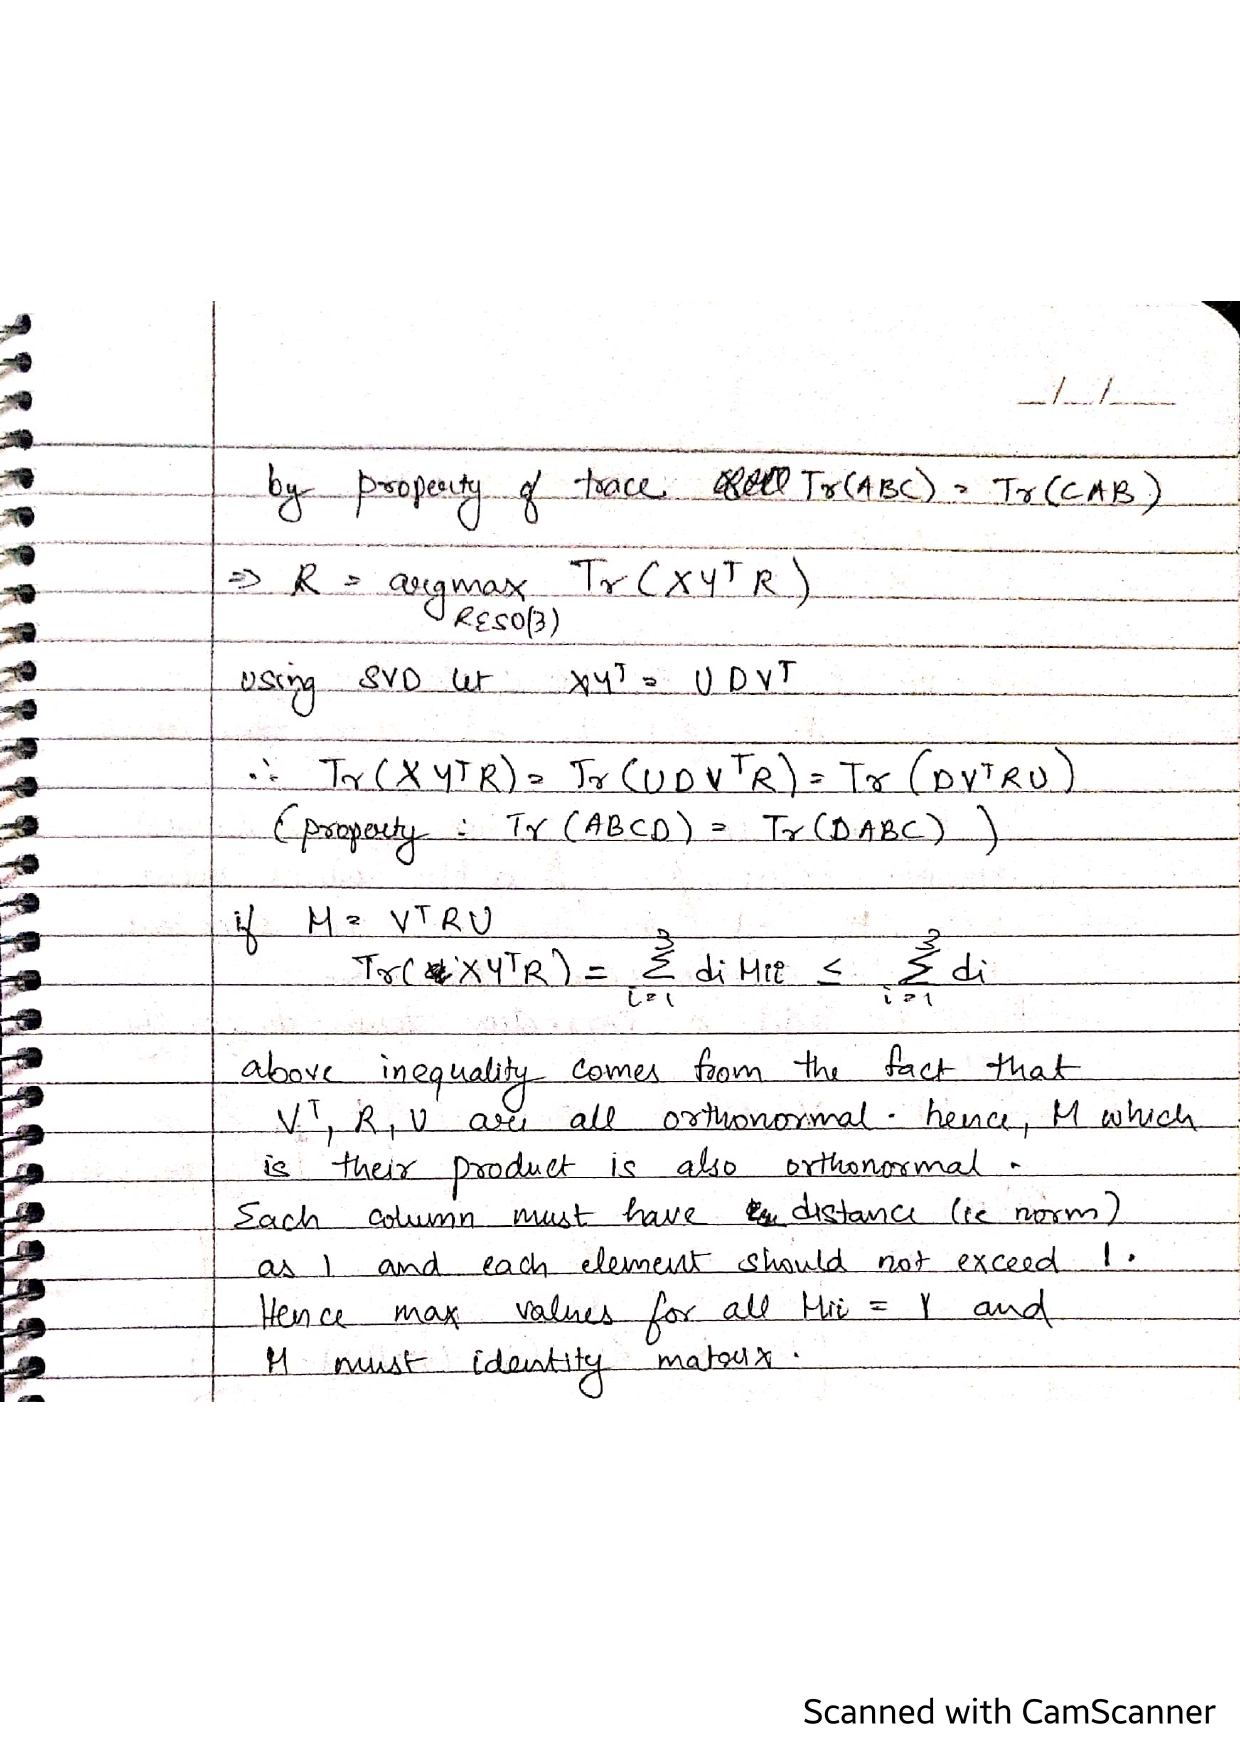 _/_/_
by property of trace Tr(ABC) = Tr(CAB)
⇒ R = argmax Tr(XYᵀR)
R∈SO(3)
using SVD let XYᵀ = UDVᵀ
∴ Tr(XYᵀR) = Tr(UDVᵀR) = Tr(DVᵀRU)
(property : Tr(ABCD) = Tr(DABC))
if M = VᵀRU
Tr(XYᵀR) = Σ_{i=1}^{3} di Mii ≤ Σ_{i=1}^{3} di
above inequality comes from the fact that
Vᵀ, R, U are all orthonormal. hence, M which
is their product is also orthonormal.
Each column must have distance (ie norm)
as 1 and each element should not exceed 1.
Hence max values for all Mii = 1 and
M must identity matrix.
Scanned with CamScanner